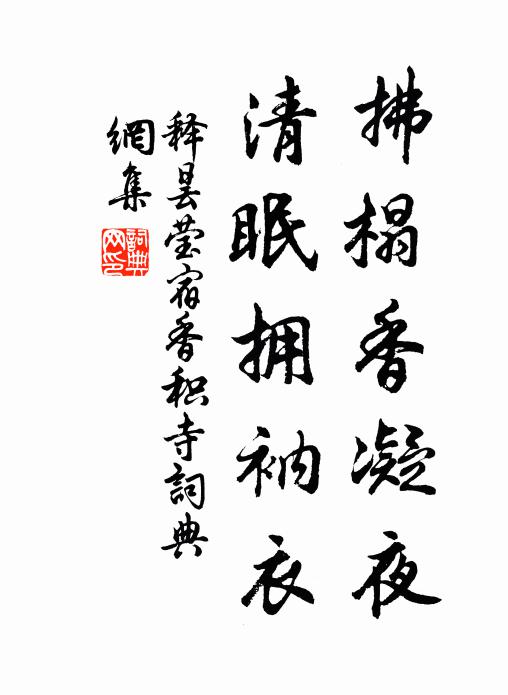 拂榻香凝夜
清眠拥衲衣
释昙莹宿香积寺詞典
網集
詞典网印